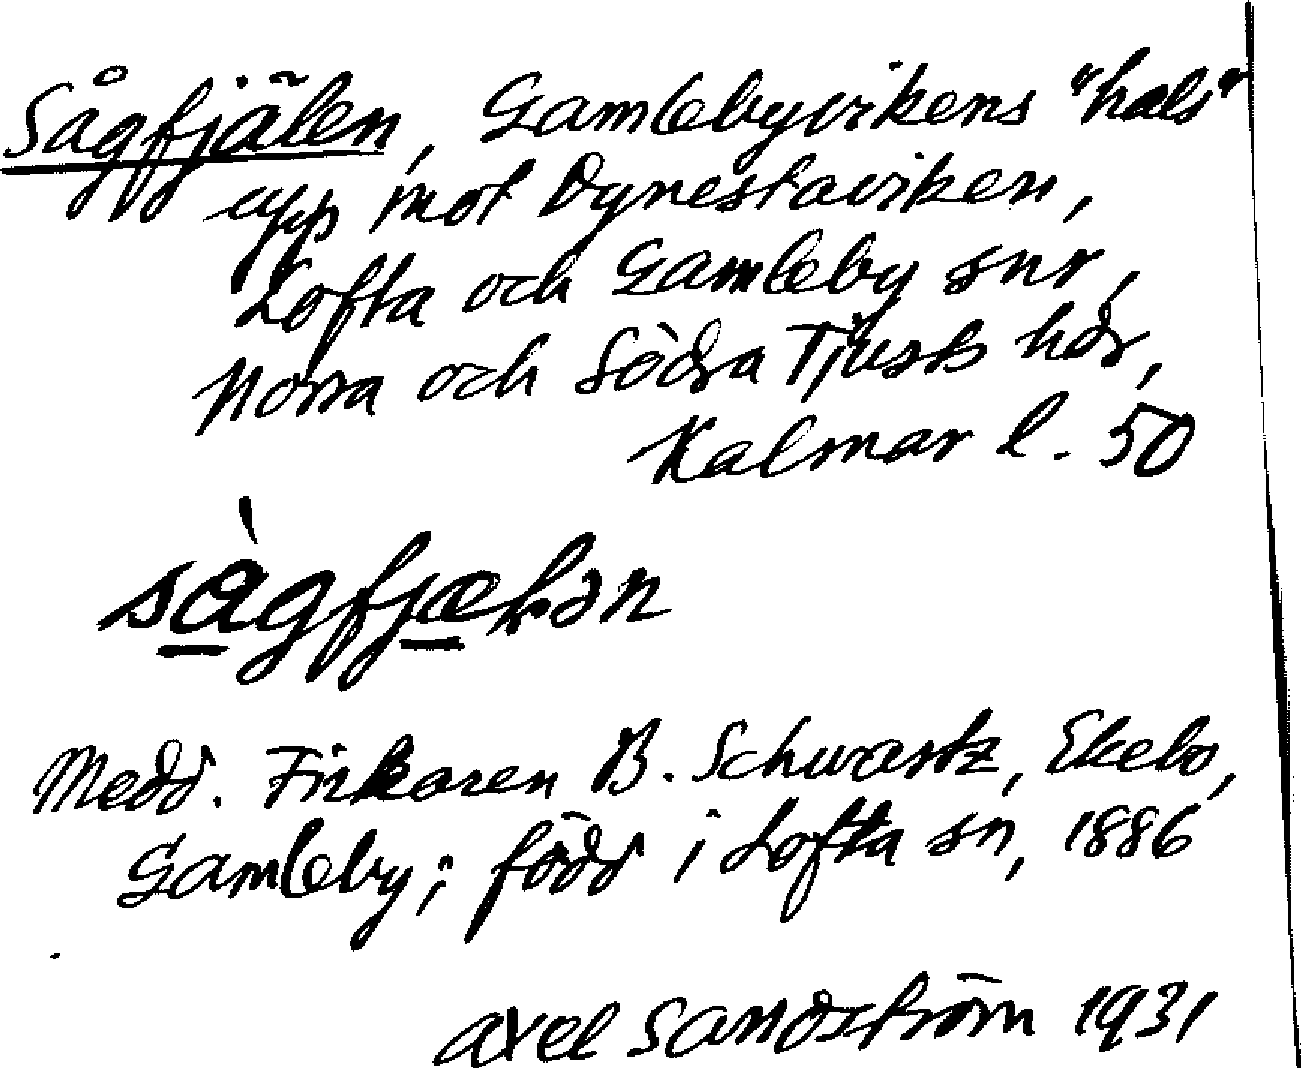 Sågfjälen, Gamlebyvikens "hals"
upp mot Dynestaviken,
Lofta och Gamleby snr,
Norra och Södra Tjusts hdr,
Kalmar l. 50
Medd. Fiskaren B. Schwartz, Ekebo,
Gamleby; född i Lofta sn, 1886
Axel Sandström 1931